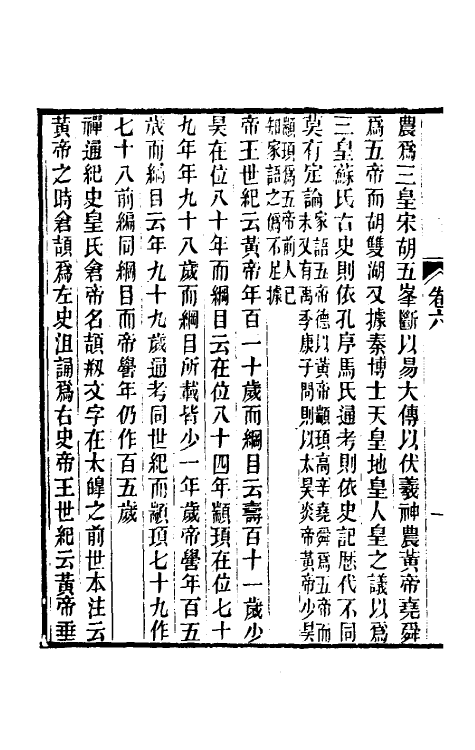 卷六
一
農爲三皇宋胡五峯斷以易大傳以伏羲神農黃帝堯舜
爲五帝而胡雙湖又據秦博士天皇地皇人皇之議以爲
三皇蘇氏古史則依孔序馬氏通考則依史記厯代不同
莫有定論
家語五帝德以黃帝顓頊高辛堯舜爲五帝而
末又有禹季康子問則以太昊炎帝黃帝少昊
顓頊爲五帝前人已
知家語之僞不足據
帝王世紀云黃帝年百一十歲而綱目云壽百十一歲少
昊在位八十年而綱目云在位八十四年顓頊在位七十
九年年九十八歲而綱目所載皆少一年歲帝嚳年百五
歲而綱目云年九十九歲通考同世紀而顓頊七十九作
七十八前編同綱目而帝嚳年仍作百五歲
禪通紀史皇氏倉帝名頡剏文字在太皥之前世本注云
黃帝之時倉頡爲左史沮誦爲右史帝王世紀云黃帝垂